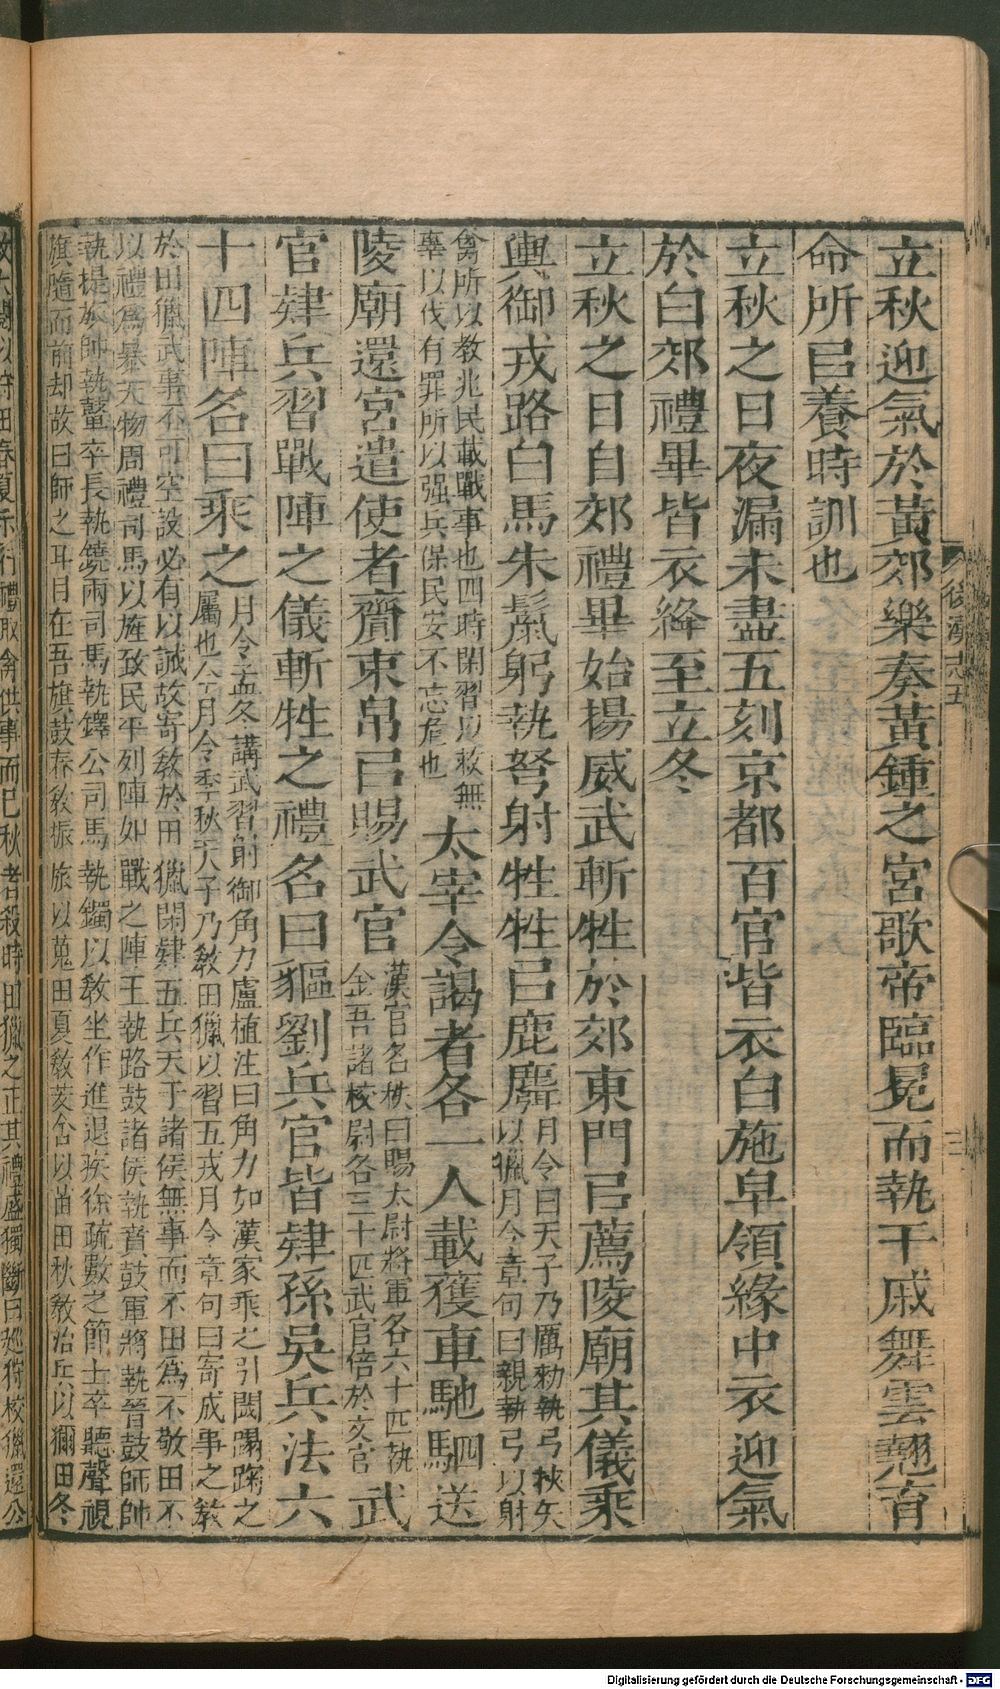 後漢志五
立秋迎氣於黃郊樂奏黃鍾之宮歌帝臨冕而執干戚舞雲翹育
命所㠯養時訓也
立秋之日夜漏未盡五刻京都百官皆衣白施皁領緣中衣迎氣
於白郊禮畢皆衣絳至立冬
立秋之日自郊禮畢始揚威武斬牲於郊東門㠯薦陵廟其儀乘
輿御戎路白馬朱鬣躬執弩射牲牲㠯鹿麛
月令曰天子乃厲勑執弓挾矢
以獵月令章句曰親執弓以射
禽所以教兆民載戰事也四時閑習以救無
辜以伐有罪所以强兵保民安不忘危也
太宰令謁者各一人載獲車馳駟送
陵廟還宮遣使者齎束帛㠯賜武官
漢官名秩曰賜太尉將軍各六十匹執
金吾諸校尉各三十匹武官倍於文官
武
官肄兵習戰陣之儀斬牲之禮名曰貙劉兵官皆肄孫吳兵法六
十四陣名曰乘之
月令孟冬講武習射御角力盧植注曰角力如漢家乘之引關蹋踘之
屬也今月令季秋天子乃敎田獵以習五戎月令章句曰寄戎事之敎
於田獵武事不可空設必有以誡故寄敎於田獵閑肄五兵天子諸侯無事而不田爲不敬田不
以禮爲暴天物周禮司馬以旌致民平列陣如戰之陣王執路鼓諸侯執賁鼓軍將執晉鼓師帥
執提旅帥執鼙卒長執鐃兩司馬執鐸公司馬執鐲以敎坐作進退疾徐疏數之節士卒聽聲視
旗隨而前却故曰師之耳目在吾旗鼓春敎振旅以蒐田夏敎茇舍以苗田秋敎治兵以獮田冬
敎大閱以狩田春夏示行禮取禽供事而已秋者殺時田獵之正其禮盛獨斷曰廵狩校獵還公
Digitalisierung gefördert durch die Deutsche Forschungsgemeinschaft - DFG